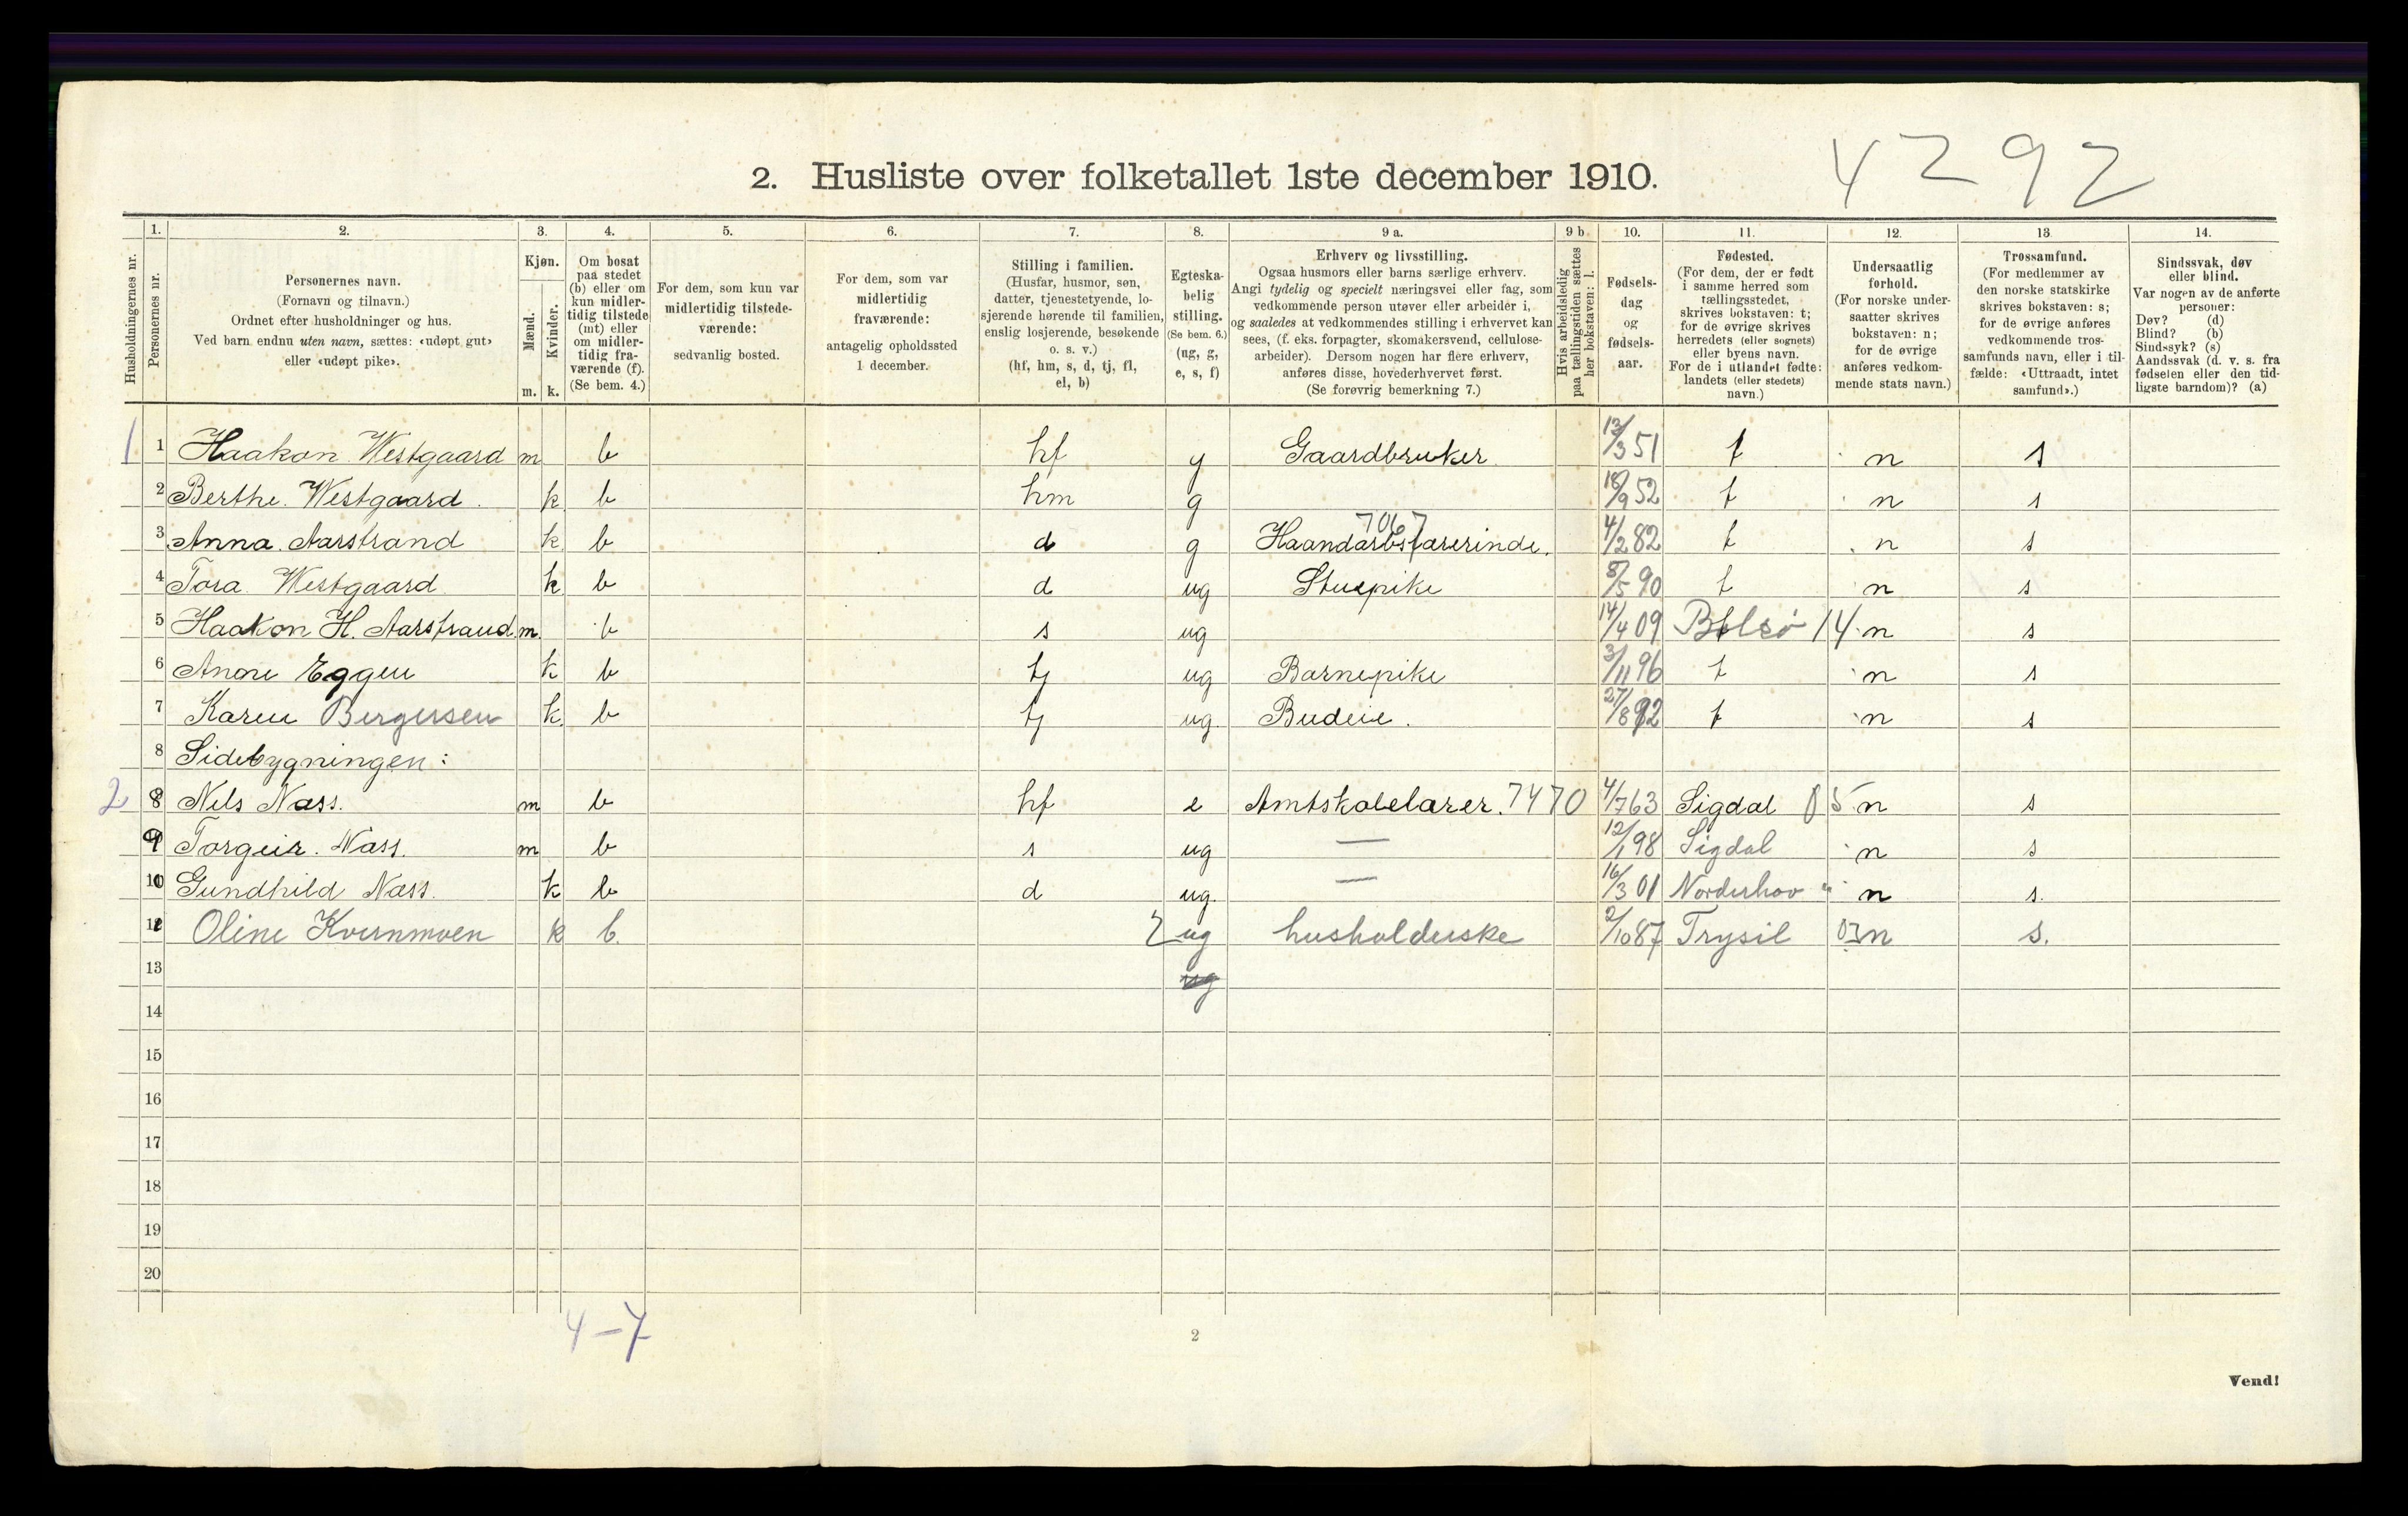 4292
2. Husliste over folketallet 1ste december 1910.
Husholdningernes nr.
1. Personernes nr.
2. Personernes navn. (Fornavn og tilnavn.) Ordnet efter husholdninger og hus. Ved barn endnu uten navn, sættes: «udøpt gut» eller «udøpt pike».
3. Kjøn. Mænd. m. Kvinder. k.
4. Om bosat paa stedet (b) eller om kun midlertidig tilstede (mt) eller om midlertidig fraværende (f). (Se bem. 4.)
5. For dem, som kun var midlertidig tilstedeværende: sedvanlig bosted.
6. For dem, som var midlertidig fraværende: antagelig opholdssted 1 december.
7. Stilling i familien. (Husfar, husmor, søn, datter, tjenestetyende, losjerende hørende til familien, enslig losjerende, besøkende o. s. v.) (hf, hm, s, d, tj, fl, el, b)
8. Egteskabelig stilling. (Se bem. 6.) (ug, g, e, s, f)
9 a. Erhverv og livsstilling. Ogsaa husmors eller barns særlige erhverv. Angi tydelig og specielt næringsvei eller fag, som vedkommende person utøver eller arbeider i, og saaledes at vedkommendes stilling i erhvervet kan sees, (f. eks. forpagter, skomakersvend, cellulosearbeider). Dersom nogen har flere erhverv, anføres disse, hovederhvervet først. (Se forøvrig bemerkning 7.)
9 b Hvis arbeidsledig paa tællingstiden sættes her bokstaven: l.
10. Fødselsdag og fødselsaar.
11. Fødested. (For dem, der er født i samme herred som tællingsstedet, skrives bokstaven: t; for de øvrige skrives herredets (eller sognets) eller byens navn. For de i utlandet fødte: landets (eller stedets) navn.)
12. Undersaatlig forhold. (For norske undersaatter skrives bokstaven: n; for de øvrige anføres vedkommende stats navn.)
13. Trossamfund. (For medlemmer av den norske statskirke skrives bokstaven: s; for de øvrige anføres vedkommende trossamfunds navn, eller i tilfælde: «Uttraadt, intet samfund».)
14. Sindssvak, døv eller blind. Var nogen av de anførte personer: Døv? (d) Blind? (b) Sindssyk? (s) Aandssvak (d. v. s. fra fødselen eller den tidligste barndom)? (a)
1 1 Haakon Westgaard m b hf g Gaardbruker 13/3 51 t n s
2 Berthe Westgaard k b hm g 18/9 52 t n s
7067
3 Anna Aarstrand k b d g Haandarbslærerinde. 4/2 82 t n s
4 Tora Westgaard k b d ug Stuepike 8/5 90 t n s
5 Haakon H. Aarstrand m b s ug 14/4 09 Bolsø 14 n s
6 Anne Eggen k b tj ug Barnepike 3/11 96 t n s
7 Karen Bergersen k b tj ug Budeie. 27/8 92 t n s
8 Sidebygningen:
2 8 Nils Næss. m b hf e Amtskolelærer. 7470 4/7 63 Sigdal 05 n s
9 Torgeir Næss. m b s ug — 12/1 98 Sigdal n s
10 Gundhild Næss. k b d ug. — 16/3 01 Norderhov " n s.
11 Oline Kvernmoen k b. ug husholderske 2/10 87 Trysil 03 n s.
13 ug
14
15
16
17
18
19
20
4-7
2
Vend!